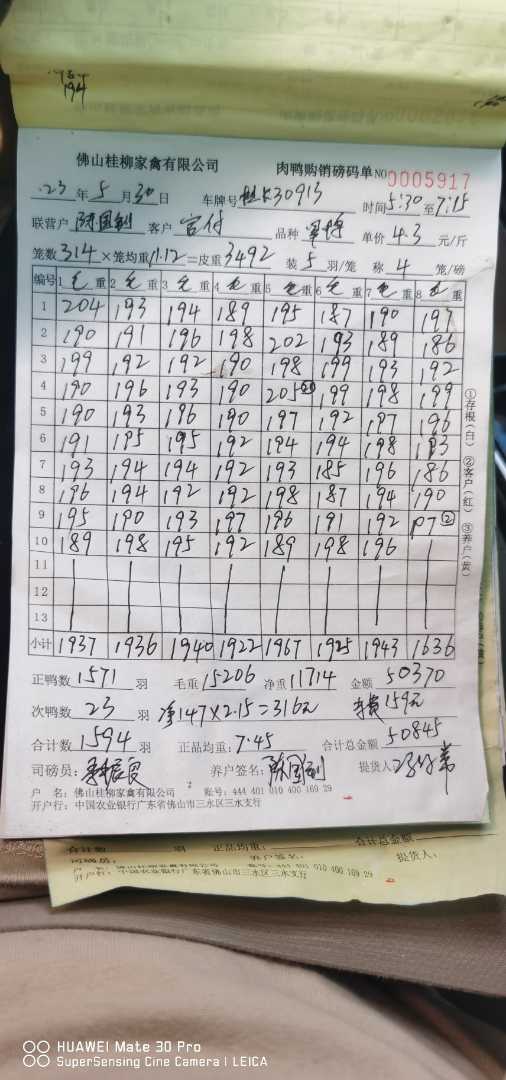 194
佛山桂柳家禽有限公司 肉鸭购销磅码单 NO 0005917
23年5月30日 车牌号 K30913 时间5:30至7:15
联营户 陈国 客户 官付 品种 单价 4.3 元/斤
笼数 314 ×笼均重 11.12 =皮重 3492 装 5 羽/笼 称 4 笼/磅
编号 1 毛重 2 毛重 3 毛重 4 毛重 5 毛重 6 毛重 7 毛重 8 毛重
1 204 193 194 189 195 187 190 197
2 190 191 196 198 202 193 189 186
3 199 192 192 190 198 199 193 192
4 190 196 193 190 205 199 198 199
5 190 193 196 190 197 192 197 196
6 191 195 195 192 194 194 198 193
7 193 194 194 192 193 185 196 186
8 196 194 192 192 198 187 194 190
9 195 190 193 197 196 191 192 97②
10 189 198 195 192 189 198 196
11
12
13
小计 1937 1936 1940 1922 1967 1925 1943 1636
①存根(白) ②客户(红) ③养户(黄)
正鸭数 1571 羽 毛重 15206 净重 11714 金额 50370
次鸭数 23 羽 净147×2.15=316元 159元
合计数 1594 羽 正品均重: 7.45 合计总金额 50845
司磅员: 养户签名: 陈国 提货人
户 名: 佛山桂柳家禽有限公司 账号: 444 401 010 400 169 29
开户行: 中国农业银行广东省佛山市三水区三水支行
合计数 羽 正品均重: 合计总金额
司磅员: 养户签名: 提货人:
户 名: 佛山桂柳家禽有限公司 账号: 444 401 010 400 169 29
开户行: 中国农业银行广东省佛山市三水区三水支行
HUAWEI Mate 30 Pro
SuperSensing Cine Camera | LEICA